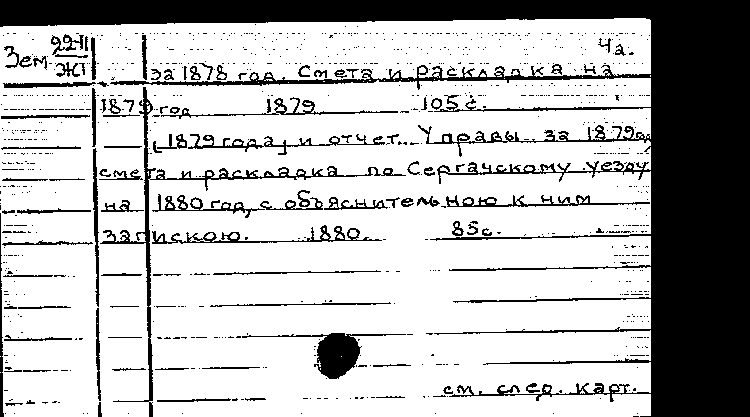 Зем 22-II 4а.
ЖI
за 1878 год. Смета и раскладка на
1879 год 1879 105 с.
[1879 года] и отчет... Управы за 1879 год
смета и раскладка по Сергачскому уезду
на 1880 год, с объяснительною к ним
запискою. 1880. 85с.
см. след. карт.